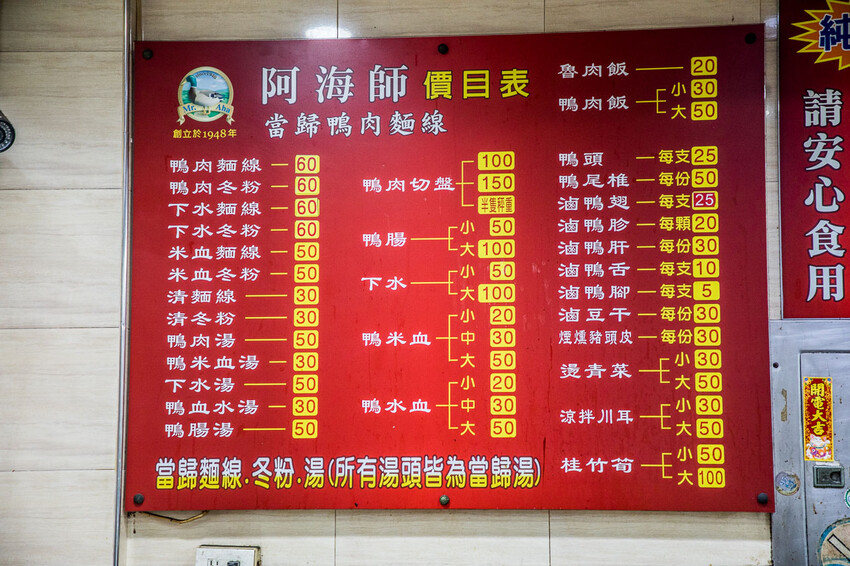 阿海師 價目表
創立於1948年
當歸鴨肉麵線
鴨肉麵線 60
鴨肉冬粉 60
下水麵線 60
下水冬粉 60
米血麵線 50
米血冬粉 50
清麵線 30
清冬粉 30
鴨肉湯 50
鴨米血湯 30
下水湯 50
鴨血水湯 30
鴨腸湯 50
鴨肉切盤 100
150
半隻秤重
鴨腸 小 50
大 100
下水 小 50
大 100
鴨米血 小 20
中 30
大 50
鴨水血 小 20
中 30
大 50
魯肉飯 20
鴨肉飯 小 30
大 50
鴨頭 每支 25
鴨尾椎 每份 50
滷鴨翅 每支 25
滷鴨胗 每顆 20
滷鴨肝 每份 30
滷鴨舌 每支 10
滷鴨腳 每支 5
滷豆干 每份 30
煙燻豬頭皮 每份 30
燙青菜 小 30
大 50
涼拌川耳 小 30
大 50
桂竹筍 小 50
大 100
當歸麵線.冬粉.湯(所有湯頭皆為當歸湯)
純
請安心食用
開電大吉